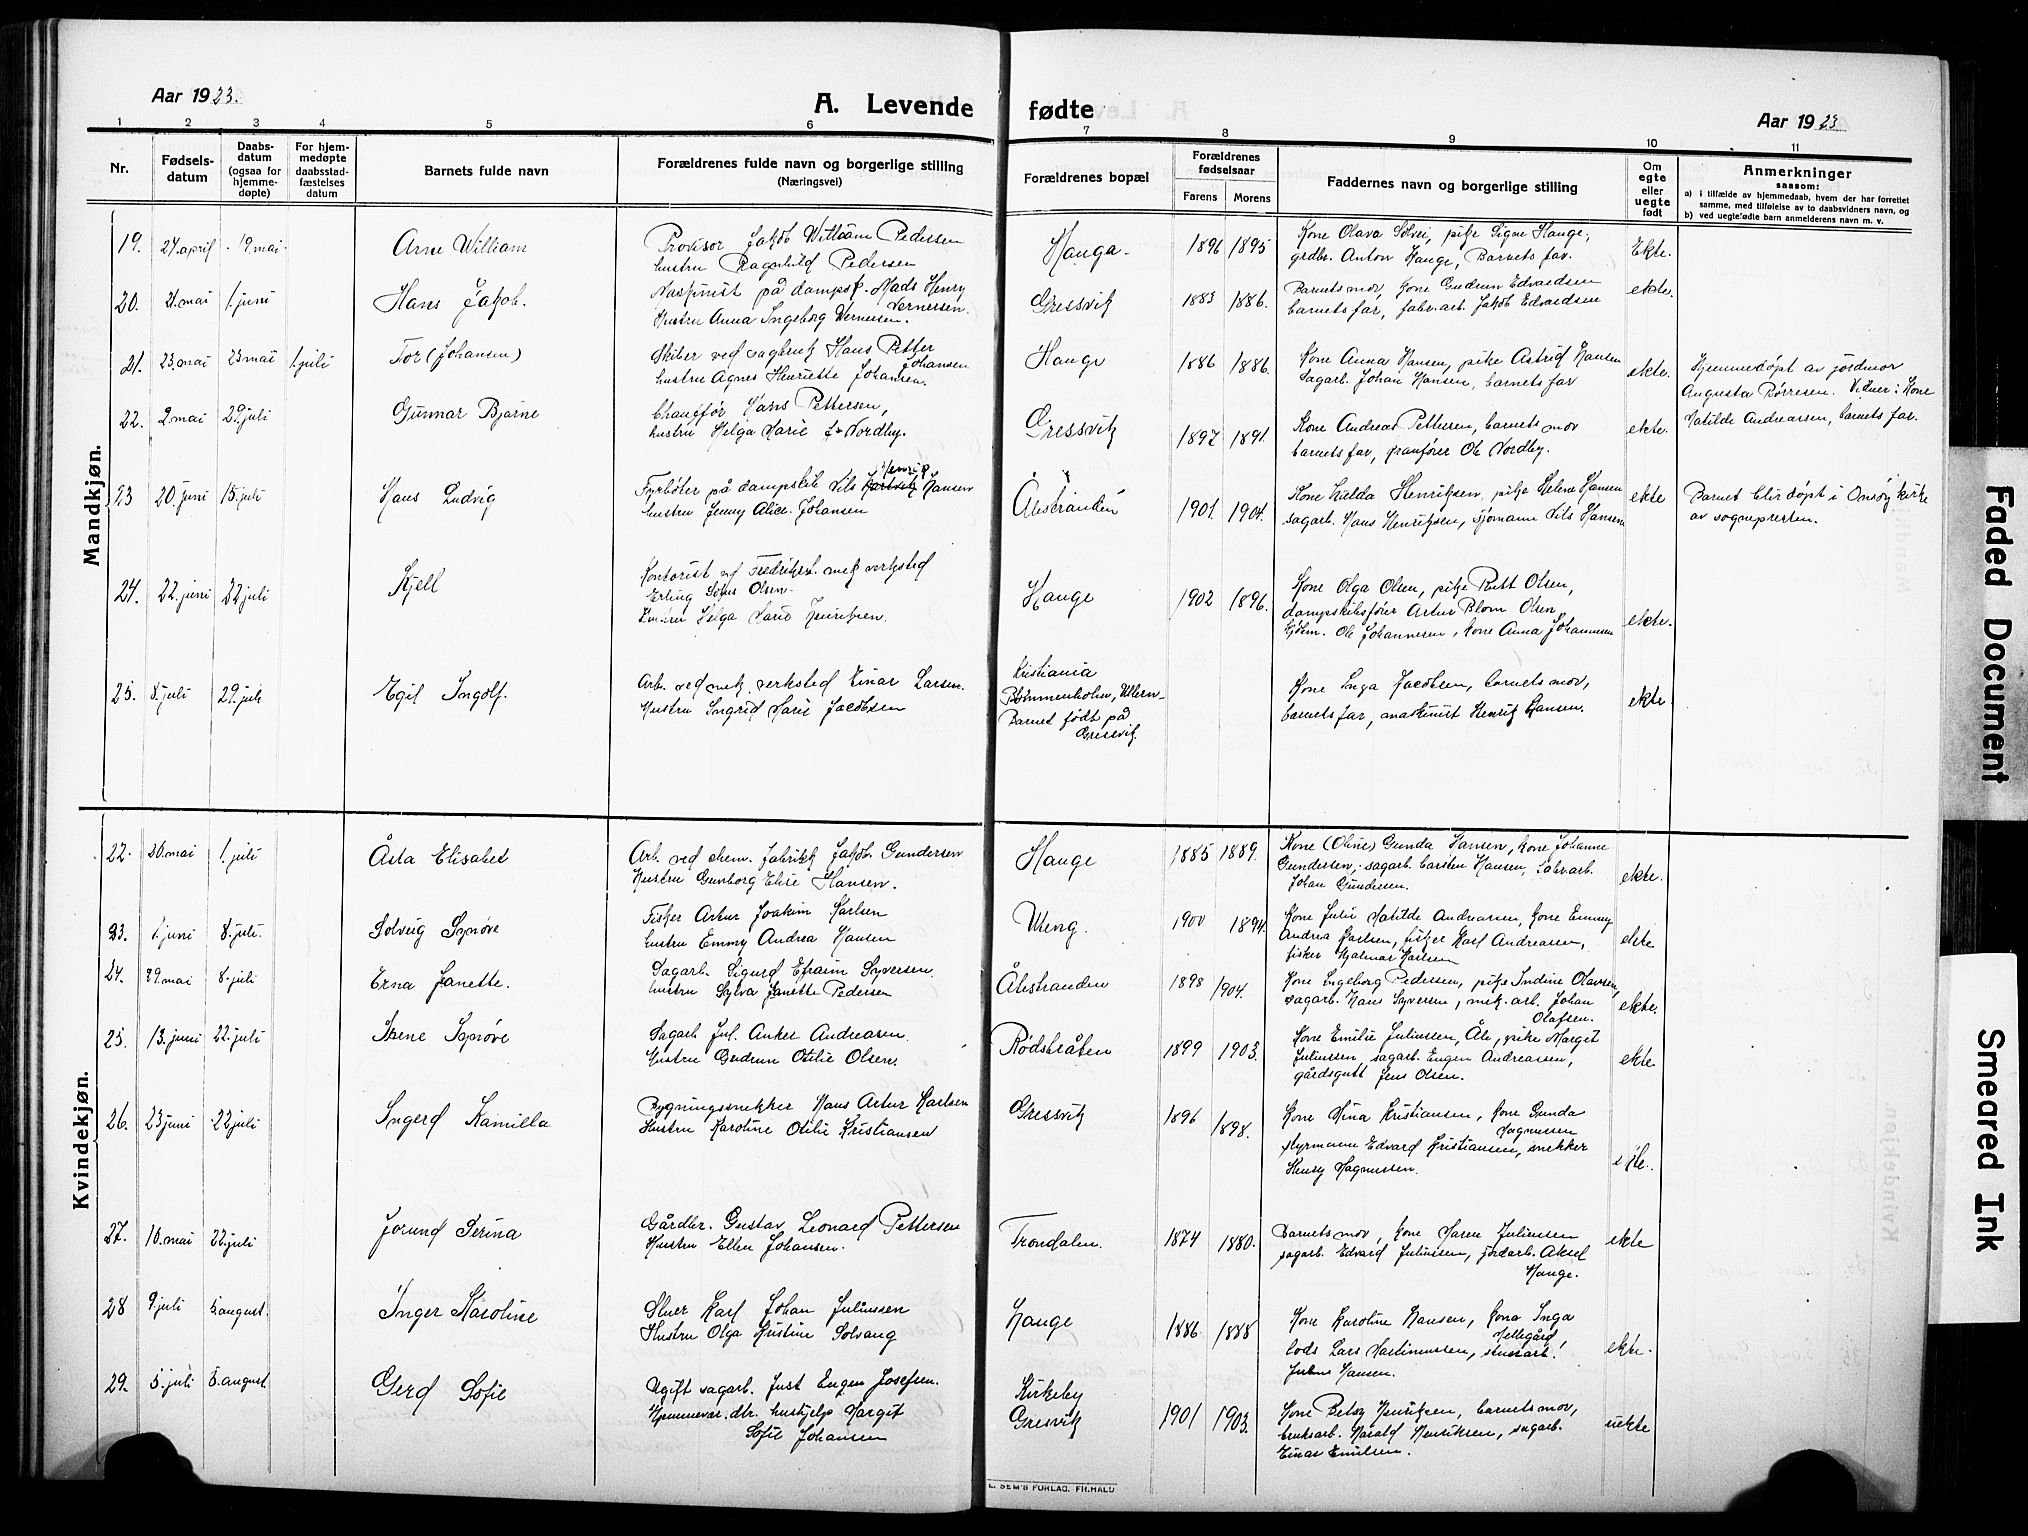 Aar 1923.
A. Levende fødte
Aar 1923
1 2 3 4 5 6 7 8 9 10 11
Nr.
Fødsels-
datum
Daabs-
datum
(ogsaa for
hjemme-
døpte)
For hjem-
medøpte
daabsstad-
fæstelses
datum
Barnets fulde navn
Forældrenes fulde navn og borgerlige stilling
(Næringsvei)
Forældrenes bopæl
Forældrenes
fødselsaar
Farens Morens
Faddernes navn og borgerlige stilling
Om
egte
eller
uegte
født
Anmerkninger
saasom:
a) i tilfælde av hjemmedaab, hvem der har forrettet
samme, med tilføielse av to daabsvidners navn, og
b) ved uegtefødte barn anmelderens navn m. v.
Mandkjøn.
19. 27. april 19. mai Arne William
Provisor Jakob William Pedersen
hustru Ragnhild Pedersen
Hauga. 1896 1895
Kone Olava Solvei, pike Signe Hauge,
grdbr. Anton Hauge, Barnets far.
Ekte.
20. 21. mai 1. juni Hans Jakob.
Maskinist på dampsk. Mads Henry
Wernersen.
Hustru Anna Ingeborg Wernersen.
Gressvik 1883 1886.
Barnets mor, kone Gudrun Edvardsen
barnets far, fabr. arb. Jakob Edvardsen
ekte.
21. 23. mai 23 mai 1. juli Tor (Johansen)
Skiber ved sagbruk Hans Petter
Johansen
hustru Agnes Henriette Johansen.
Hauge 1886 1886.
Kone Anna Hansen, pike Astrid Hansen
Sagarb. Johan Hansen, barnets far
ekte.
Hjemmedøpt av jordmor
Augusta Børresen. Vidner: Kone
Matilde Andreassen, barnets far.
22. 2. mai 29. juli Gunnar Bjarne
Chauffør Hans Pettersen,
hustru Helga Marie f. Nordby.
Gressvik 1897 1891.
Kone Andrea Pettersen, barnets mor
barnets far, pramfører Ole Nordby.
ekte.
23 20. juni 15. juli Hans Ludvig
Henrik
Fyrbøter på dampskib Nils Hansen
hustru Jenny Alice Johansen
Ålestranden 1901. 1904.
Kone Halda Henriksen, pike Helene Hansen
sagarb. Hans Henriksen, sjømann Nils Hansen
ekte
Barnet blir døpt i Onsøy kirke
av sognepresten.
24. 22. juni 22 juli Kjell
Kontorist ved Fredrikst. mek verksted
Erling Sofus Olsen
Hustru Helga Marie Henriksen.
Hauge 1902 1896.
Kone Olga Olsen, pike Rutt Olsen,
dampskibsfører Artur Blom Olsen
Ole Johannesen, kone Anna Johannessen
ekte.
25. 8. juli 29. juli Egil Ingolf.
Arb. ved mek. verksted Einar Larsen.
Hustru Ingrid Marie Jacobsen
Kristiania
Bømmenholm, Ullern
Barnet født på
Gressvik.
Kone Inga Jacobsen, barnets mor,
barnets far, maskinist Henrik Hansen.
ekte.
Kvindekjøn.
22. 20. mai 1. juli Åsta Elisabet
Arb. ved chem. fabrikk Jakob Gundersen
Hustru Gunborg Elise Hansen.
Hauge 1885 1889.
Kone (Oline) Gunda Hansen, kone Johanne
Gundersen, sagarb. Carsten Hansen, fabr. arb.
Johan Gundersen.
ekte.
23. 1. juni 8. juli. Solveig Synøve
Fisker Artur Joakim Karlsen
hustru Emmy Andrea Hansen
Uteng. 1900 1894.
Kone Julie Matilde Andreassen, kone Emmy
Andrea Karlsen, fisker Karl Andreasen,
fisker Hjalmar Karlsen
ekte
24. 29. mai 8. juli Erna Janette.
Sagarb. Sigurd Efraim Syversen
hustru Sylva Janette Pedersen
Ålestranden 1898 1904.
Kone Engeborg Pedersen, pike Indine Olavsen,
sagarb. Hans Syversen, mek. arb. Johan
Olafsen.
ekte.
25. 13. juni 22. juli Irene Synøve
Sagarb. Jul. Anker Andreasen
Hustru Gudrun Otilie Olsen
Rødsbråten 1899 1903.
Kone Emilie Juliussen, Åle, pike Margit
Juliussen, sagarb. Eugen Andreassen,
gårdsgutt Jens Olsen.
ekte.
26. 23 juni 22 juli Ingerd Kamilla
Bygningssnekker Hans Artur Karlsen
Hustru Karoline Otilie Kristiansen
Gressvik 1896 1898.
Kone Mina Kristiansen, kone Gunda
Magnussen
styrmann Edvard Kristiansen, snekker
Henry Magnussen.
ekte.
27. 10. mai 22. juli Jorund Perina
Gårdbr. Gustav Leonard Pettersen
Hustru Ellen Johansen.
Trondalen. 1874 1880.
Barnets mor, kone Maren Juliussen
sagarb. Edvard Juliussen, jordarb. Aksel
Hauge.
ekte
28 9. juli 5 august. Inger Karoline
Stuer Karl Johan Juliussen
Hustru Olga Kristine Solvang
Hauge 1886 1888
Kone Karoline Hansen, kone Inga
Hellegård
lods Lars Martinussen, stuerarb.
Julius Hansen.
ekte.
29. 5. juli 5. august Gerd Sofie
Ugift sagarb. Just Eugen Josefsen.
Hjemmevær. dtr. hushjelp Margit
Sofie Johansen
Kirkeby
Gresvik 1901 1903.
Kone Betsy Henriksen, barnets mor,
bruksarb. Harald Henriksen, sagarb.
Einar Emilsen.
uekte
E. SEM'S FORLAG, FR.HALD
Faded Document
Smeared Ink